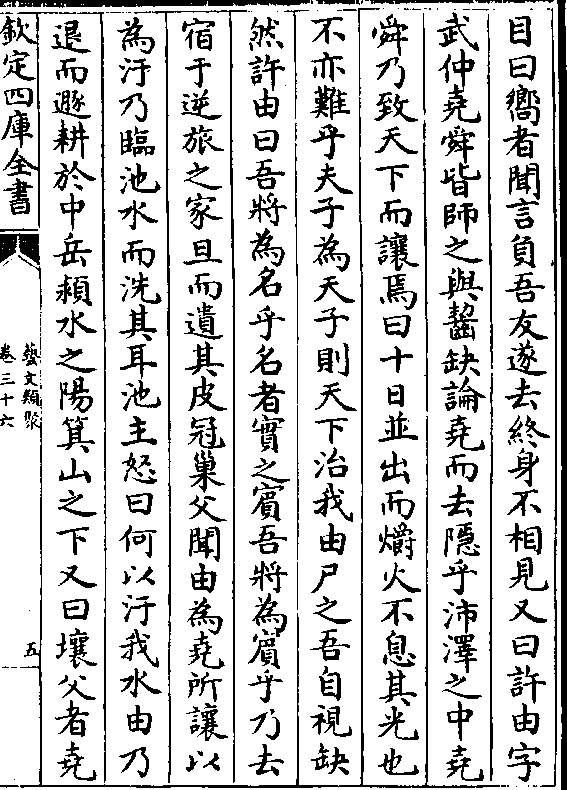 目曰嚮者聞言負吾友遂去終身不相見又曰許由字
武仲堯舜皆師之與齧缺論堯而去隱乎沛澤之中堯
舜乃致天下而讓焉曰十日並出而爝火不息其光也
不亦難乎夫子為天子則天下治我由尸之吾自視缺
然許由曰吾將為名乎名者實之賓吾將為賓乎乃去
宿于逆旅之家旦而遺其皮冠巢父聞由為堯所讓以
為汙乃臨池水而洗其耳池主怒曰何以汙我水由乃
退而遯耕於中岳潁水之陽箕山之下又曰壤父者堯
欽定四庫全書
藝文類聚
卷三十六
五